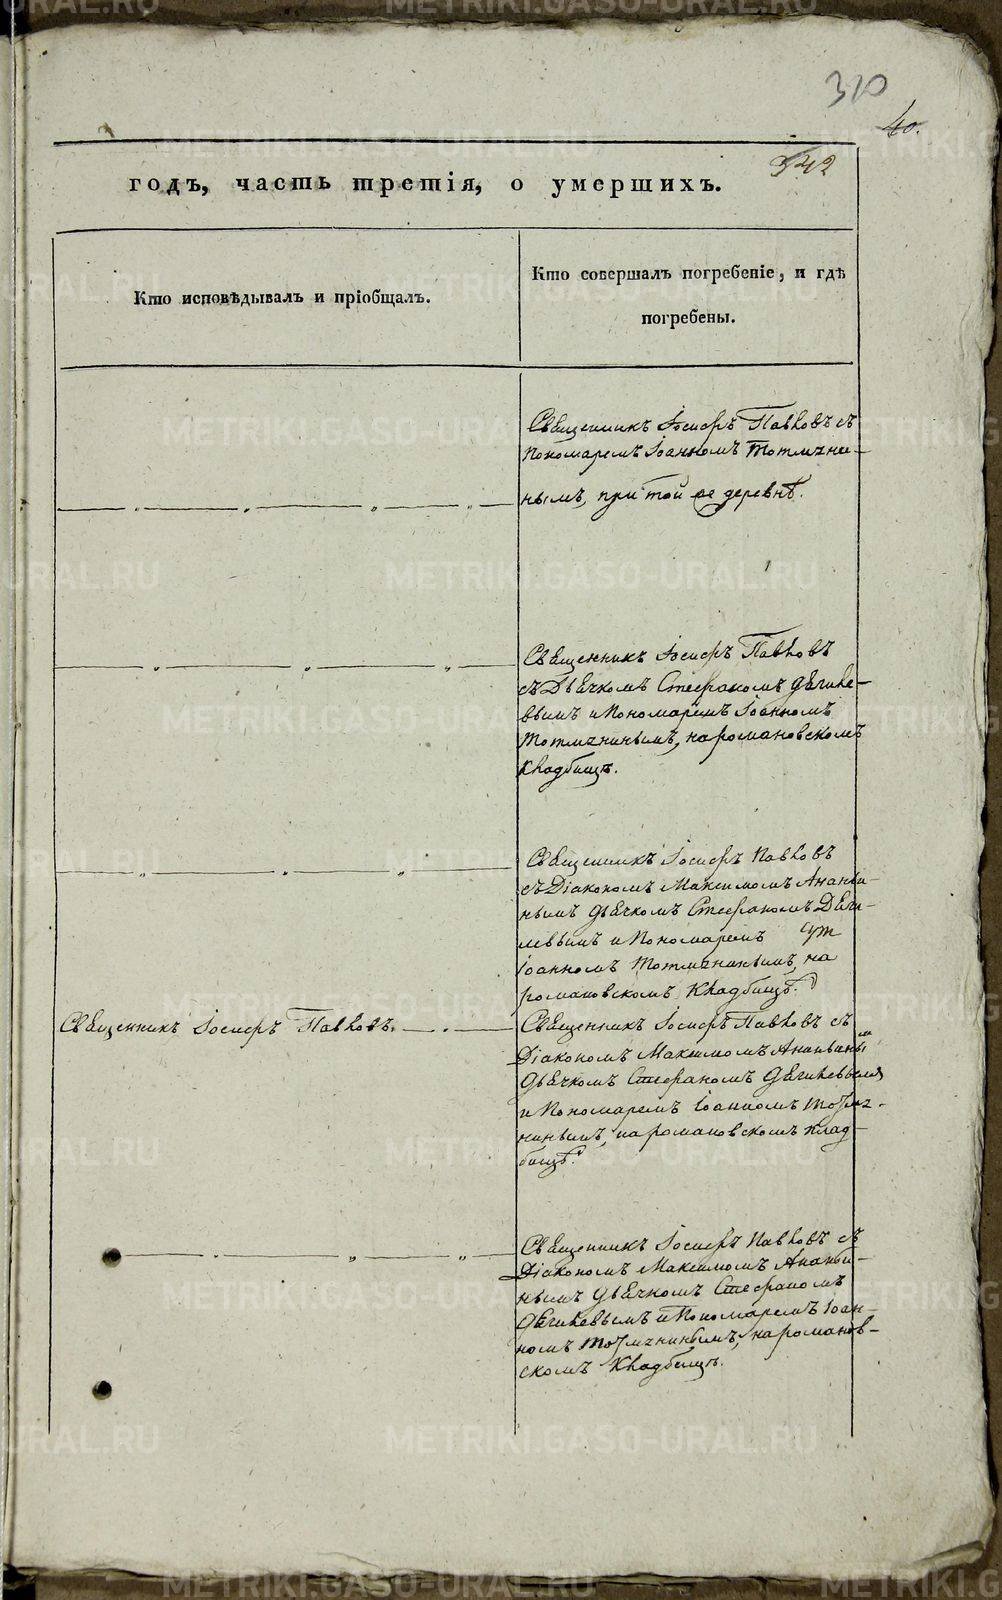 310
40.
342
годъ, часть третія, о умершихъ.
Кто исповѣдывалъ и пріобщалъ.
Кто совершалъ погребеніе, и гдѣ
погребены.
Священникъ Іосифъ Павловъ съ
Пономаремъ Іоанномъ Тотмяни-
нымъ, при той же деревнѣ.
Священникъ Іосифъ Павловъ
съ Дьячкомъ Стефаномъ Дягиле-
вымъ и Пономаремъ Іоанномъ
Тотмянинымъ, на романовскомъ
кладбищѣ.
Священникъ Іосифъ Павловъ
съ Діакономъ Максимомъ Ананьи-
нымъ дьячкомъ Стефаномъ Дяги-
левымъ и Пономаремъ
Іоанномъ Тотмянинымъ, на
романовскомъ кладбищѣ.
Священникъ Іосифъ Павловъ.
Священникъ Іосифъ Павловъ съ
Діакономъ Максимомъ Ананьинымъ
дьячкомъ Стефаномъ Дягилевымъ
и Пономаремъ Іоанномъ Тотмя-
нинымъ, на романовскомъ клад-
бищѣ.
Священникъ Іосифъ Павловъ съ
Діакономъ Максимомъ Ананьи-
нымъ дьячкомъ Стефаномъ
Дягилевымъ и Пономаремъ Іоан-
номъ Тотмянинымъ, на романов-
скомъ кладбищѣ.
METRIKI.GASO-URAL.RU